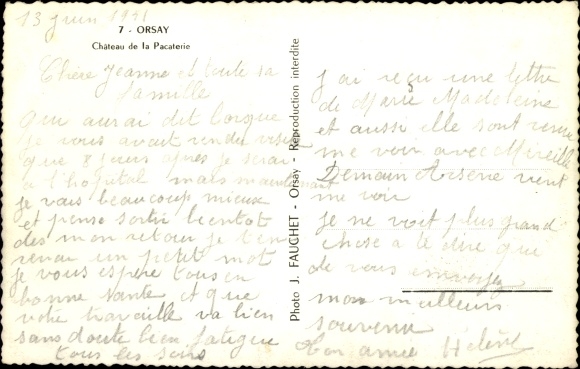 13 juin 1951
7 - ORSAY
Château de la Pacaterie
Chère Jeanne et toute sa
famille
Qui aurai dit lorsque
je vous avait rendu visite
que 8 jours après je serai
a l'hopital mais maintenant
je vais beaucoup mieux
et pense sortir bientot
dès mon retour je t'en
un petit mot
je vous espère tous en
bonne santé et que
votre travaille va bien
sans doute bien fatigue
tous les soirs
Photo J. FAUCHET - Orsay - Reproduction interdite
J'ai reçu une lettre
de Marie Madeleine
et aussi elle sont venue
me voir avec Mireille
Demain Arsene vient
me voir
je ne voit plus grand
chose a te dire que
de vous envoyez
mon meilleurs
souvenir
Ton amie Hélène